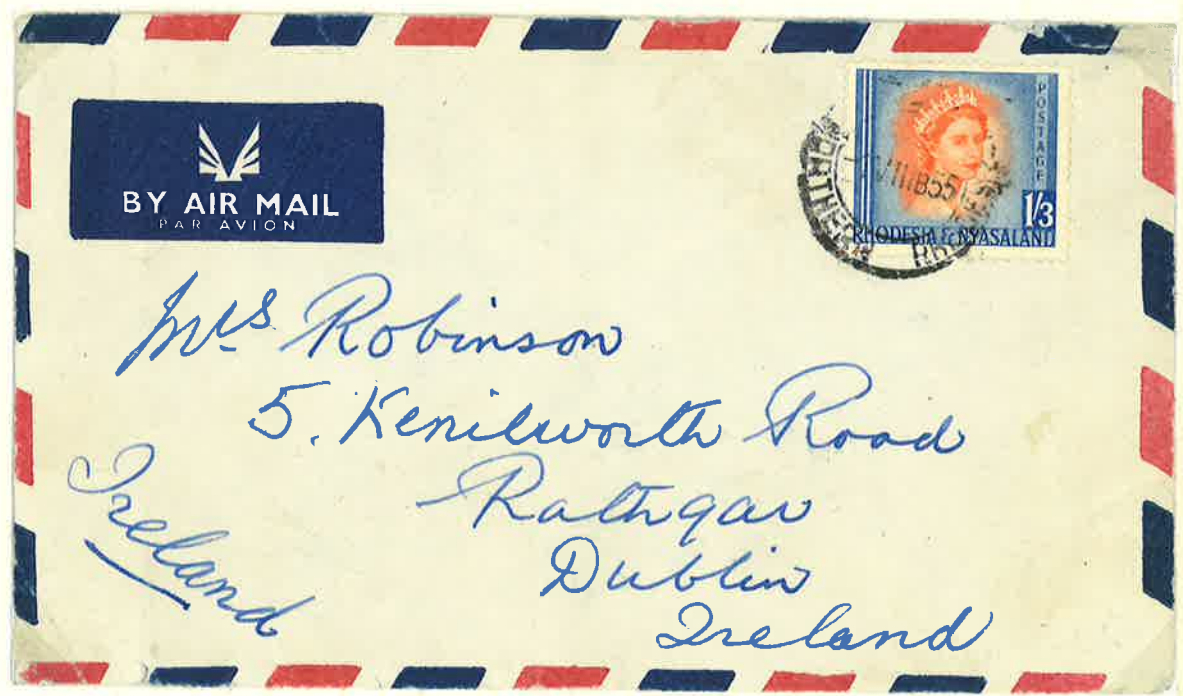 BY AIR MAIL
PAR AVION
POSTAGE
1/3
RHODESIA & NYASALAND
Mrs Robinson
5. Kenilworth Road
Rathgar
Dublin
Ireland
Ireland